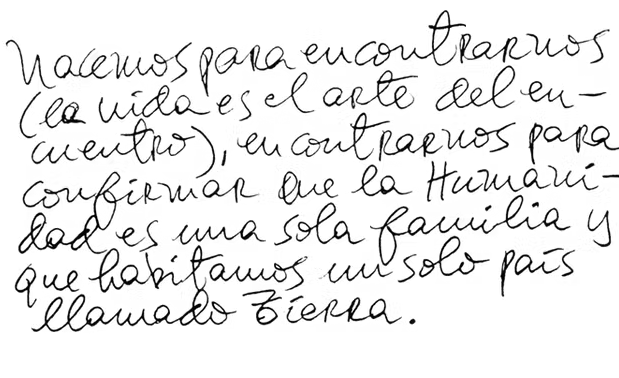 Nacemos para encontrarnos
(la vida es el arte del en-
cuentro), encontrarnos para
confirmar que la Humani-
dad es una sola familia y
que habitamos un solo país
llamado Tierra.